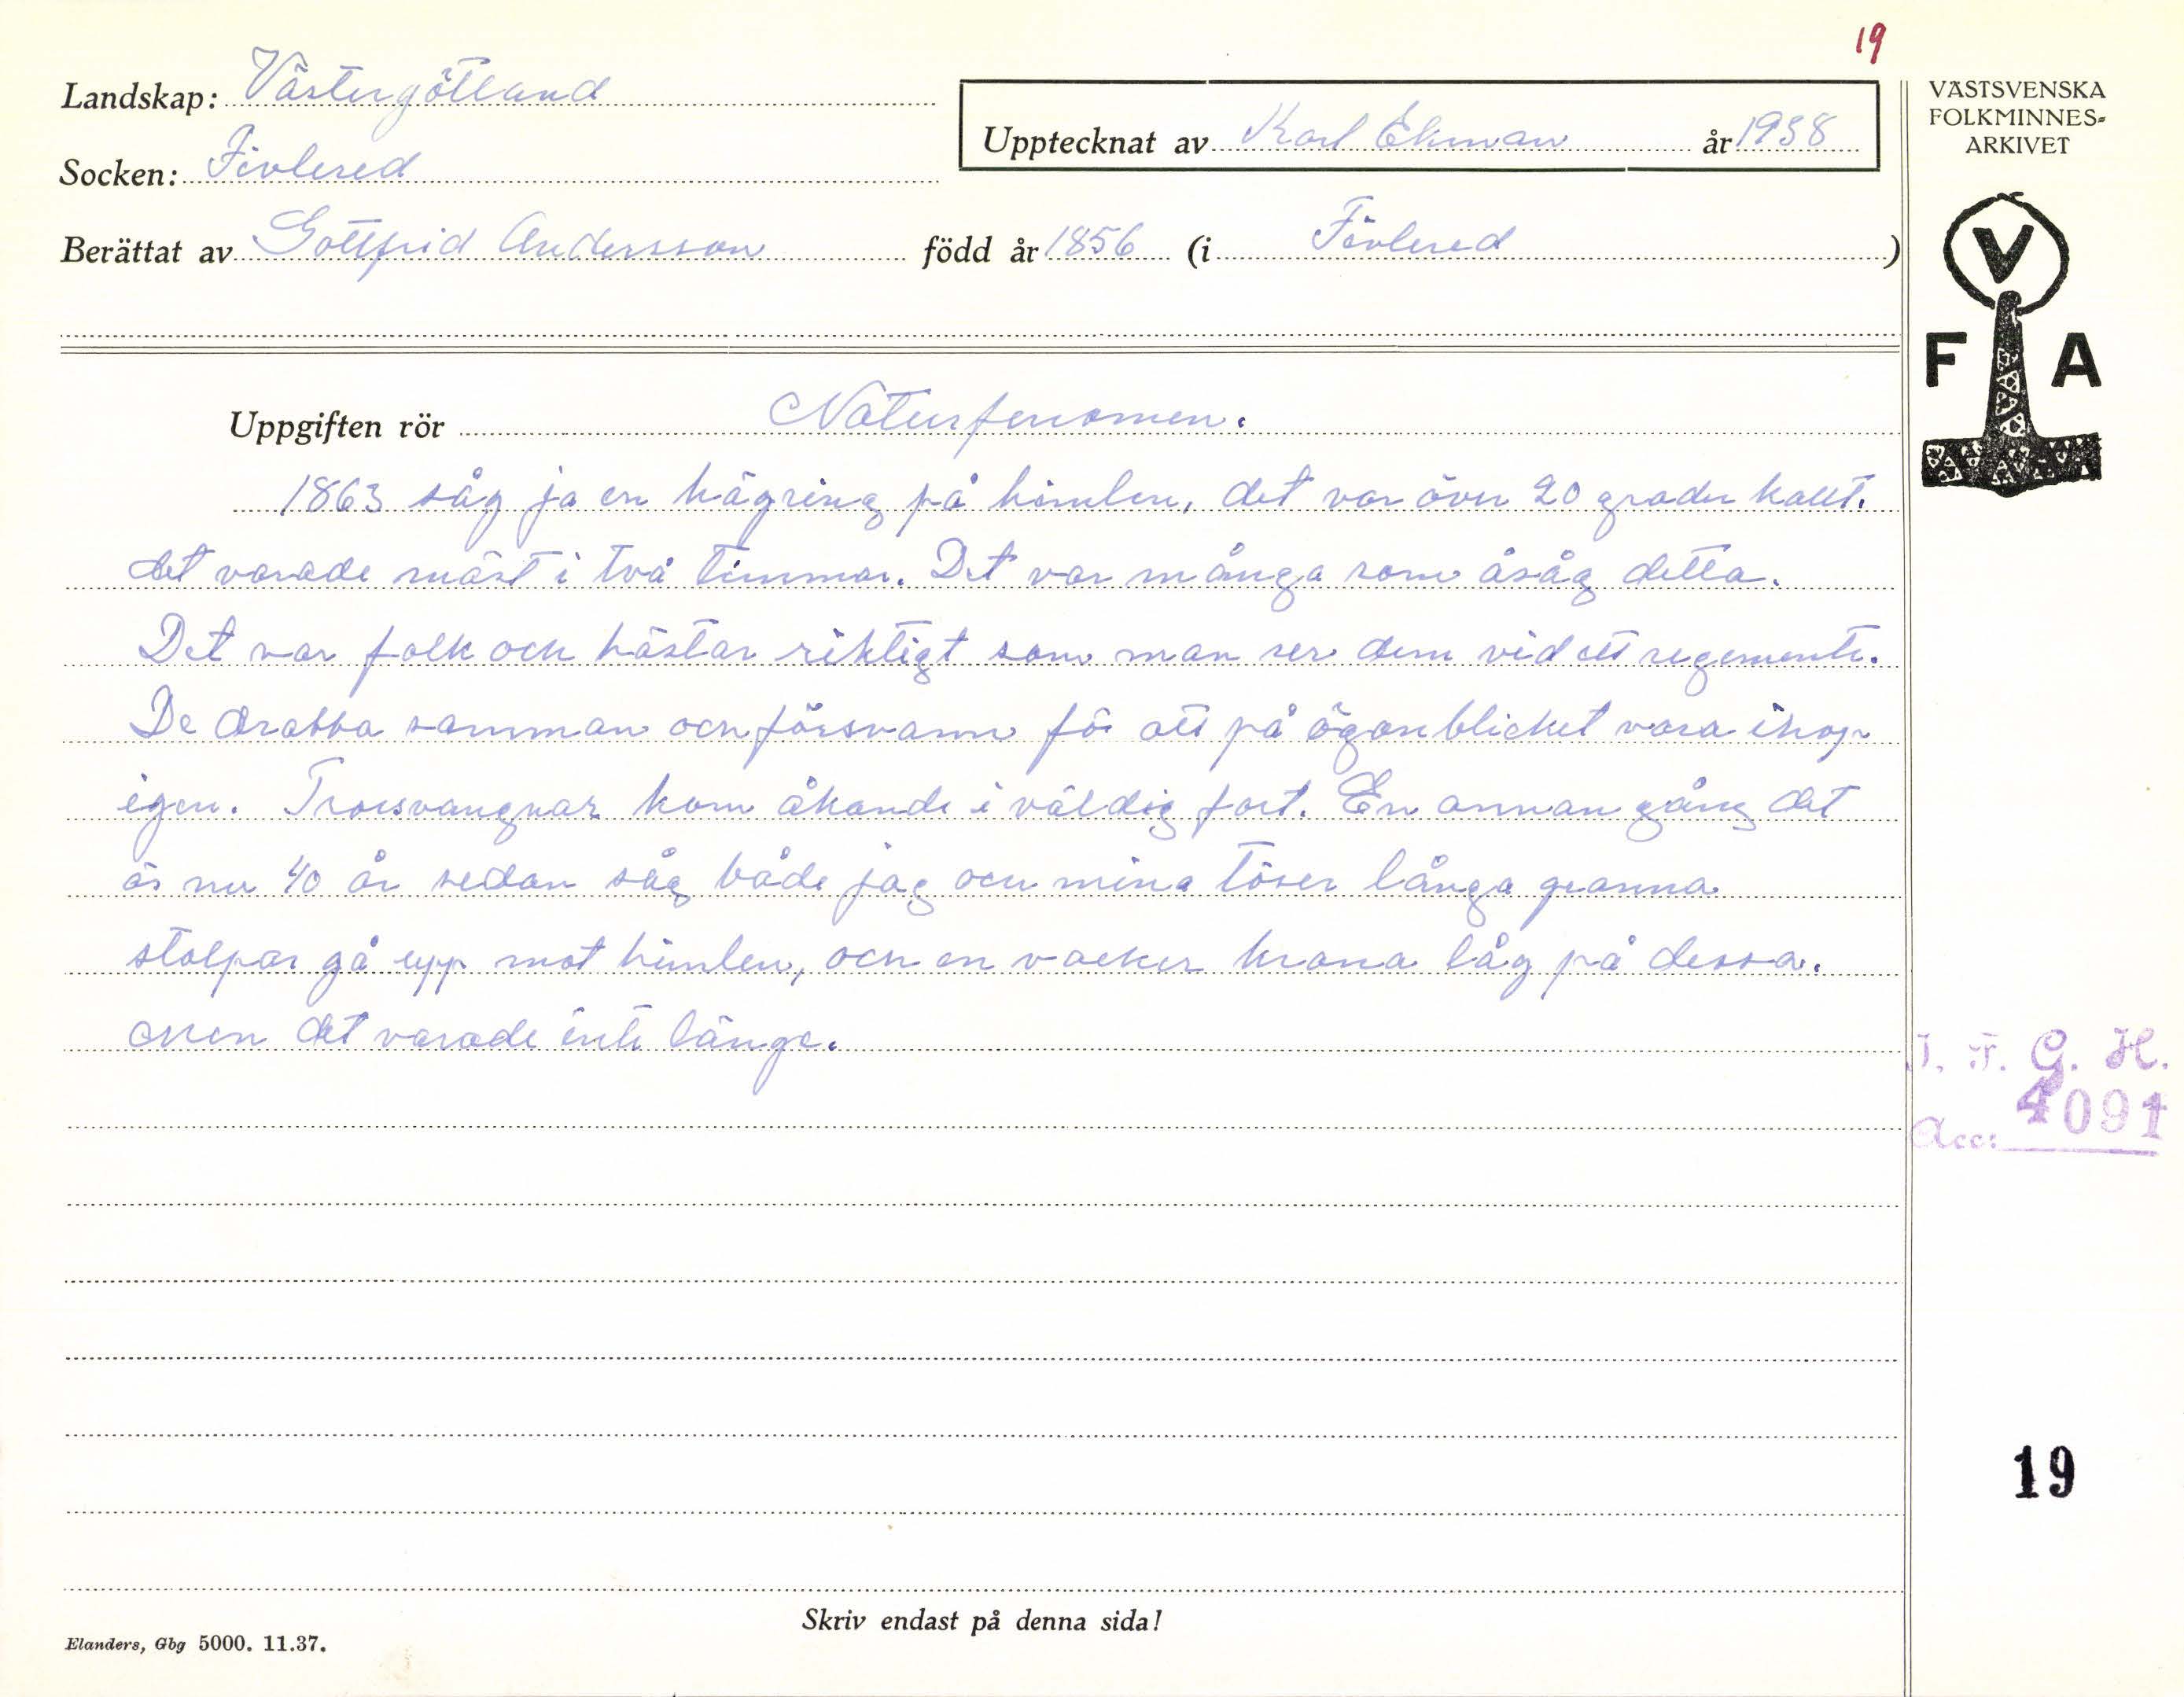 19
Landskap: Västergötland
Upptecknat av Karl Ekman år 1938
VÄSTSVENSKA
FOLKMINNES-
ARKIVET
Socken: Fivlered
Berättat av Gottfrid Andersson född år 1856 (i Fivlered)
V
F A
Uppgiften rör Naturfenomen.
1863 såg ja en hägring på himlen, det var över 20 grader kallt.
det varade mäst i två timmar. Det var många som åsåg detta.
Det var folk och hästar riktigt som man ser dem vid ett regemente.
De drabba samman och försvann för att på ögonblicket vara ihop
igen. Trossvangnar kom åkande i väldig fart. En annan gång det
är nu 40 år sedan såg både jag och mina töser långa granna
stolpar gå upp mot himlen, och en vacker krona låg på dessa.
Men det varade inte länge.
I. F. G. H.
Acc: 4091
19
Skriv endast på denna sida!
Elanders, Gbg 5000. 11.37.